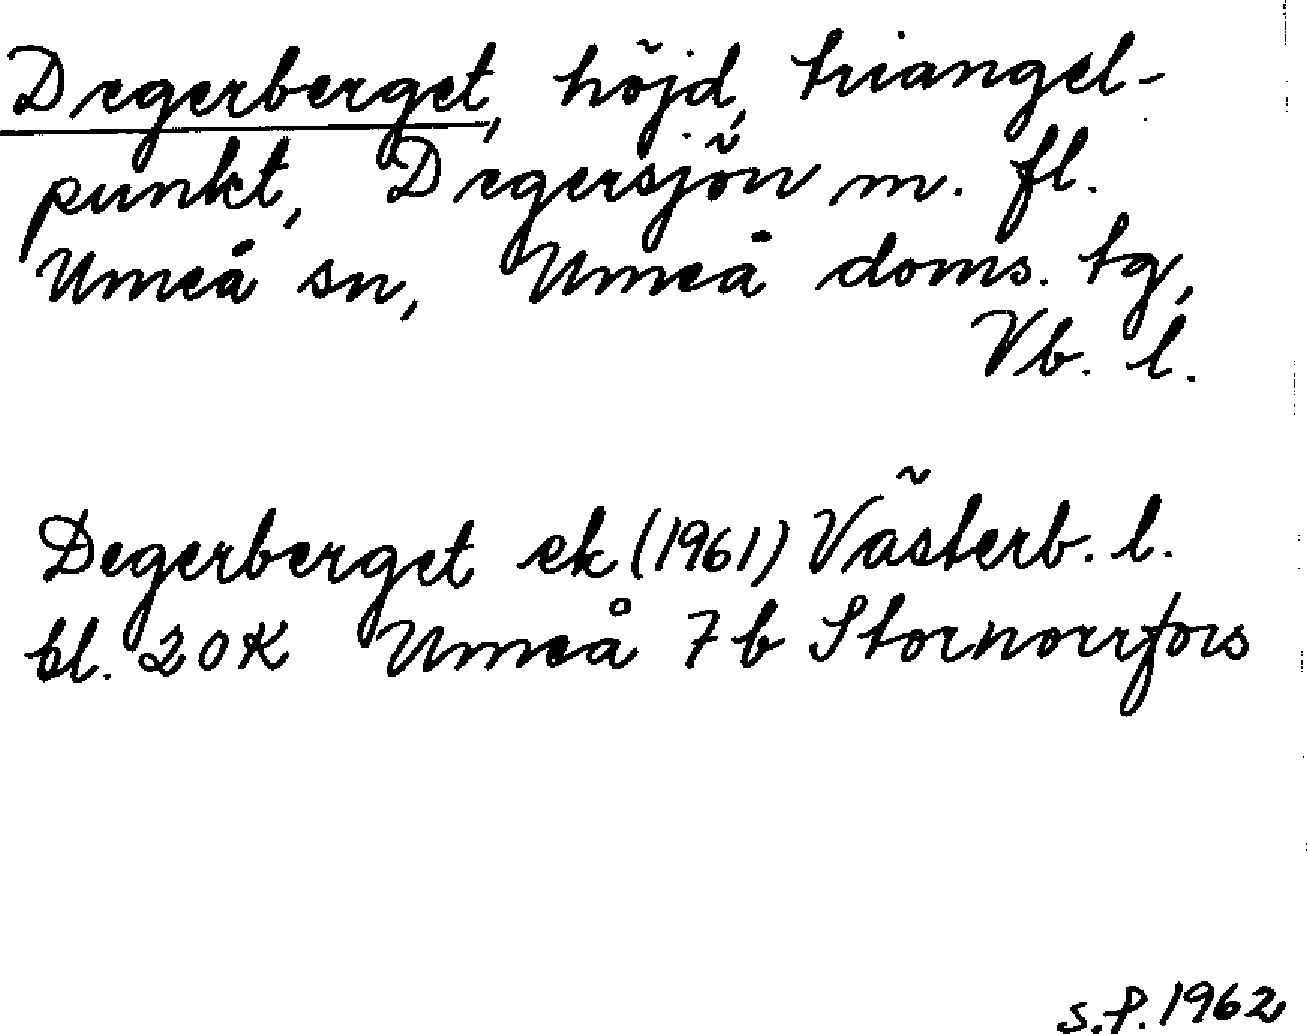 Degerberget, höjd, triangel-
punkt, Degersjön m. fl.
Umeå sn, Umeå doms. tg,
Vb. l.
Degerberget ek (1961) Västerb. l.
bl. 20K Umeå 7b Stornorrfors
s.f. 1962